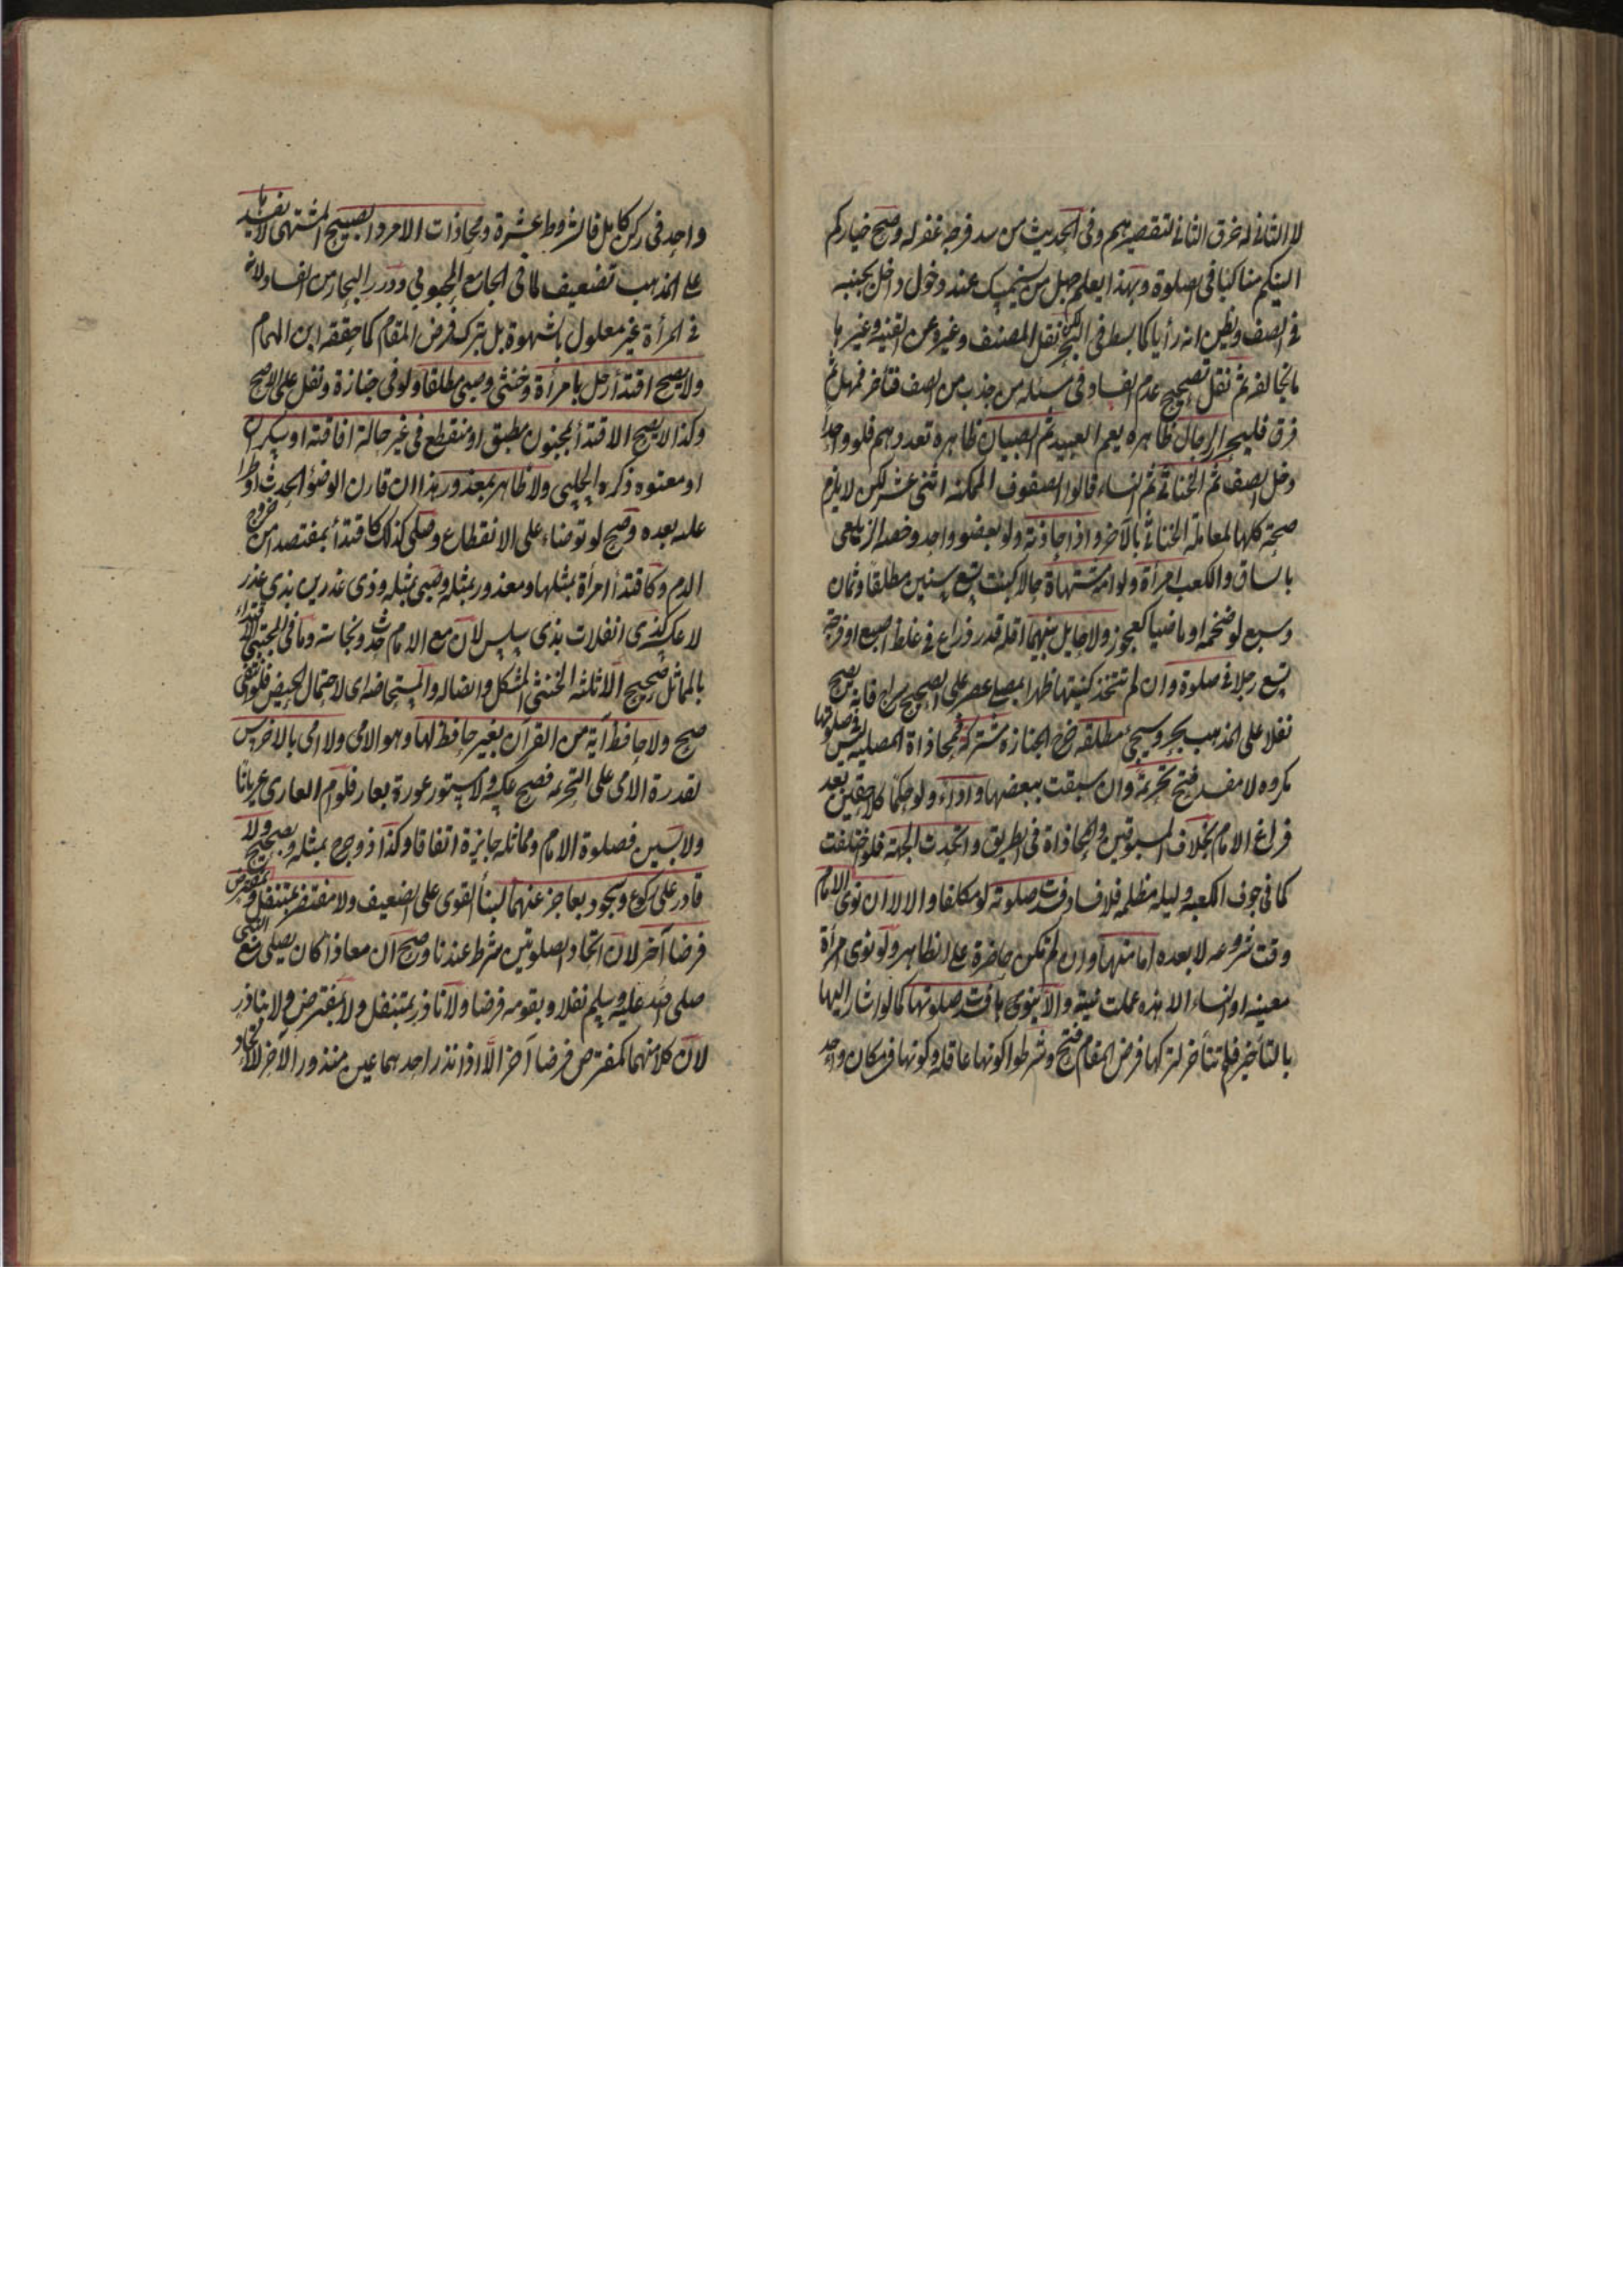 لا الثانى له خرق الثانى لتقصيرهم وفى الحديث من سد فرجة غفر له وصح خياركم
الينكم مناكبا فى الصلوة وبهذا يعلم جهل من يستمسك عند دخول داخل بجنبه
فى الصف ويظن انه رأيا كما بسط فى البحر لكن نقل المصنف وغيره عن القنيه وغيرها
ما يخالفه ثم نقل تصحيح عدم الفساد فى مسئله من جذب من الصف فتأخر فهل ثم
فرق فليحرر الرجال ظاهره يعم العبيد ثم الصبيان ظاهره تعددهم فلو واحدا
دخل الصف ثم الخناثى ثم النساء قالوا الصفوف الممكنه اثنى عشر لكن لا يلزم
صحة كلها لمعاملة الخناثى بالآخر واذا حاذته ولو بعضو واحد وخصه الزيلعى
بالساق والكعب امرأة ولو امة مشتهاة حالا كبنت تسع سنين مطلقا وثمان
وسبع لو ضخمه او ماضيا كعجوز ولا حايل بينهما اقله قدر ذراع فى غلظ اصبع او فرجة
تسع رجلا فى صلوة وان لم تتحد كنيتها ظهرا بمصلى عصر على الصحيح سراج فانه يصح
نفلا على المذهب بحر وسيجئ مطلقه خرج الجنازة مشتركة فمحاذاة المصليه ليس فى صلوتها
مكروه لا مفسد فتح تحريمة وان سبقت ببعضها واداء ولو حكما كلاحقين بعد
فراغ الامام بخلاف المسبوقين والمحاذاة فى الطريق واتحدت الجهة فلو اختلفت
كما فى جوف الكعبه وليله مظلمه فلا فساد فسدت صلوته لو مكلفا والا لا ان نوى الامام
وقت شروعه لا بعده امامتها وان لم تكن حاضرة على الظاهر ولو نوى امرأة
معينه او النساء الا هذه عملت نيته والا ينوى ها فسدت صلوتها كما لو اشار اليها
بالتأخير فلم تتأخر لتركها فرض المقام فتح وشرطوا كونها عاقله وكونهما فى مكان واحد
واحد فى ركن كامل فالشروط عشرة ومحاذات الامرد الصبيح المشتهى لا يفسدها
على المذهب تضعيف لما فى الجامع المحبوبى ودرر البحار من الفساد لانه
فى المرأة غير معلول بالشهوة بل بترك فرض المقام كما حققه ابن الهمام
ولا يصح اقتدأ رجل بامرأة وخنثى وصبى مطلقا ولو فى جنازة ونفل على الاصح
وكذا لا يصح الاقتدأ بمجنون مطبق او منقطع فى غير حالة افاقته او سكران
او معتوه ذكره الحلبى ولا ظاهر بمعذور هذا ان قارن الوضؤ الحدث او طرأ
عليه بعده وصح لو توضاء على الانقطاع وصلى كذلك كاقتدأ بمفتصد امن خروج
الدم وكاقتدأ امرأة بمثلها ومعذور بمثله وصبى بمثله وذى عذرين بذى عذر
لا عكسه كذى انفلات بذى سلس لان مع الامام حدث ونجاسه وما فى المجتبى الاقتداء
بالمماثل صحيح الا ثلثه الخنثى المشكل والضاله والمستحاضه اى لاحتمال الحيض فلو انتفى
صح ولا حافظ آية من القرآن بغير حافظ لها وهو الامى ولا امى بالاخرس
لقدرة الامى على التحريمه فصح عكسه ولا مستور عورة بعار فلو ام العارى عريانا
ولابسين فصلوة الامام ومماثله جايزة اتفاقا وكذا ذو جرح بمثله وبصحيح ولا
قادر على ركوع وسجود بعاجز عنهما لبنأ القوى على الضعيف ولا مفترض بمتنفل وبمفترض
فرضا آخر لان اتحاد الصلوتين شرط عندنا وصح ان معاذا كان يصلى مع النبى
صلى الله عليه وسلم نفلا وبقومه فرضا ولا ناذر بمتنفل ولا بمفترض ولا بناذر
لان كلا منهما كمفترض فرضا آخر الا اذا نذر احدهما عين منذور الآخر للاتحاد